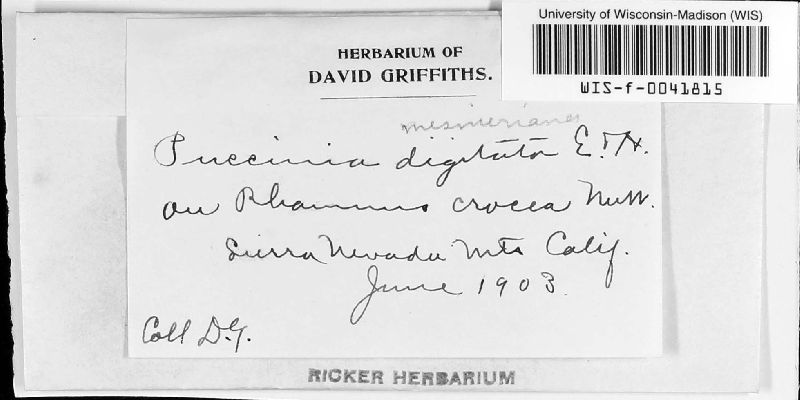 University of Wisconsin-Madison (WIS)
WIS-f-0041815
HERBARIUM OF
DAVID GRIFFITHS.
mesnieriana
Puccinia digitata E. & H.
on Rhamnus crocea Nutt.
Sierra Nevada Mts Calif.
June 1903.
Coll D.G.
RICKER HERBARIUM